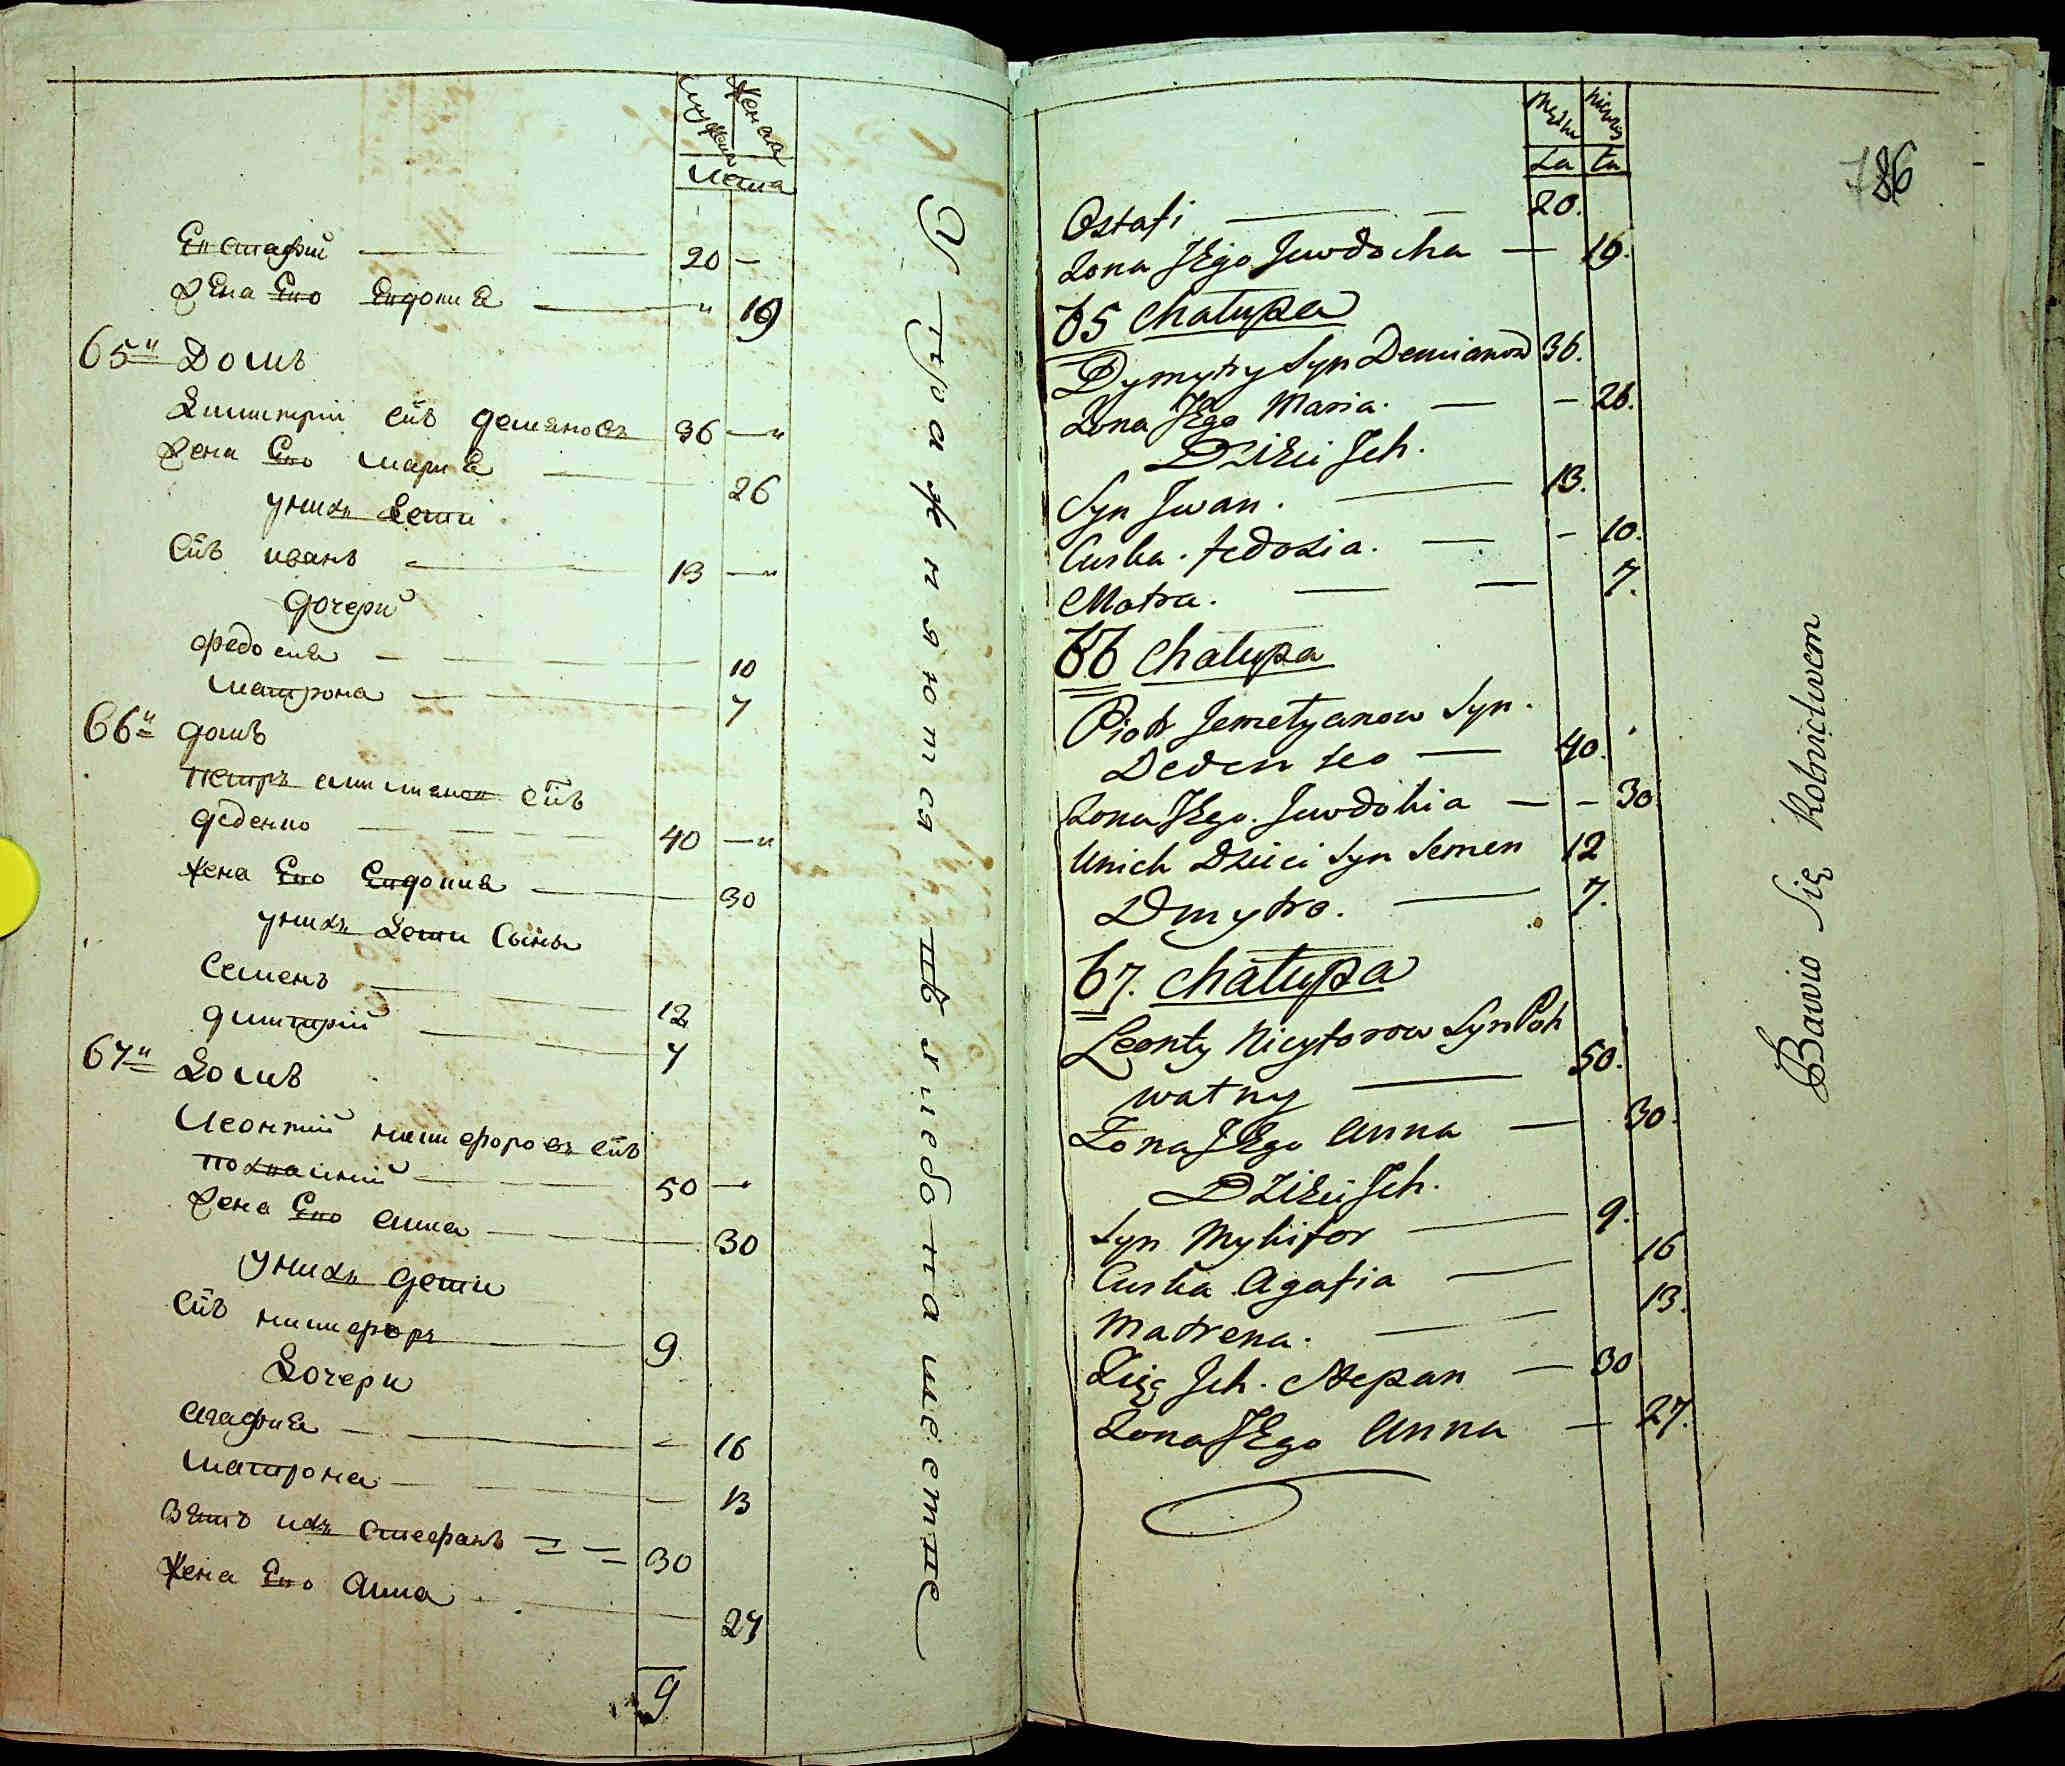 мужеска женска
лета
Евстафий — 20 —
жена Его Евдокиѣ — " 19
65й Домъ
Дмитрий сн҃ъ демяновъ 36 — "
жена Его мариѣ — 26
у нихъ дети
сн҃ъ иванъ — 13 — "
дочери
федосиѣ — 10
матрона — 7
66й домъ
петръ симианов сн҃ъ
деденко — 40 — "
жена Его Евдокиѣ — 30
у нихъ дети сыны
семенъ — 12
димитрий — 7
67й домъ
Леонтий никифоровъ сн҃ъ
похватний — 50 —
жена Его анна — 30
у нихъ дети
сн҃ъ никифоръ — 9
дочери
агафиѣ — 16
матрона — 13
зять ихъ стефанъ — 30
жена Его анна — 27
9
Упражняются в хлебопашестве
męzka
La ta
186
Ostafi — 20.
Zona JEgo Juwdocha — 19.
65 chałupa
Dymytry Syn Demianow 36.
Zona JEgo Maria. — 26.
Dzieci Jch.
Syn Jwan. — 13.
Curka. fedosia. — 10.
Motra. — 7.
66 chałupa
Piotr Semetyanow Syn.
Dedenko — 40.
Zona JEgo. Juwdokia — 30.
Unich Dzieci Syn Semen 12
Dmytro. — 7.
67. chałupa
Leonty Nicytorow Syn Poh
watny — 50.
Zona JEgo Anna — 30.
Dzieci Jch.
Syn Mykifor — 9.
Curka Agafia — 16
Matrena. — 13.
Zięc Jch. Stepan — 30
Zona JEgo Anna — 27.
Bawio Się Rolnictwem